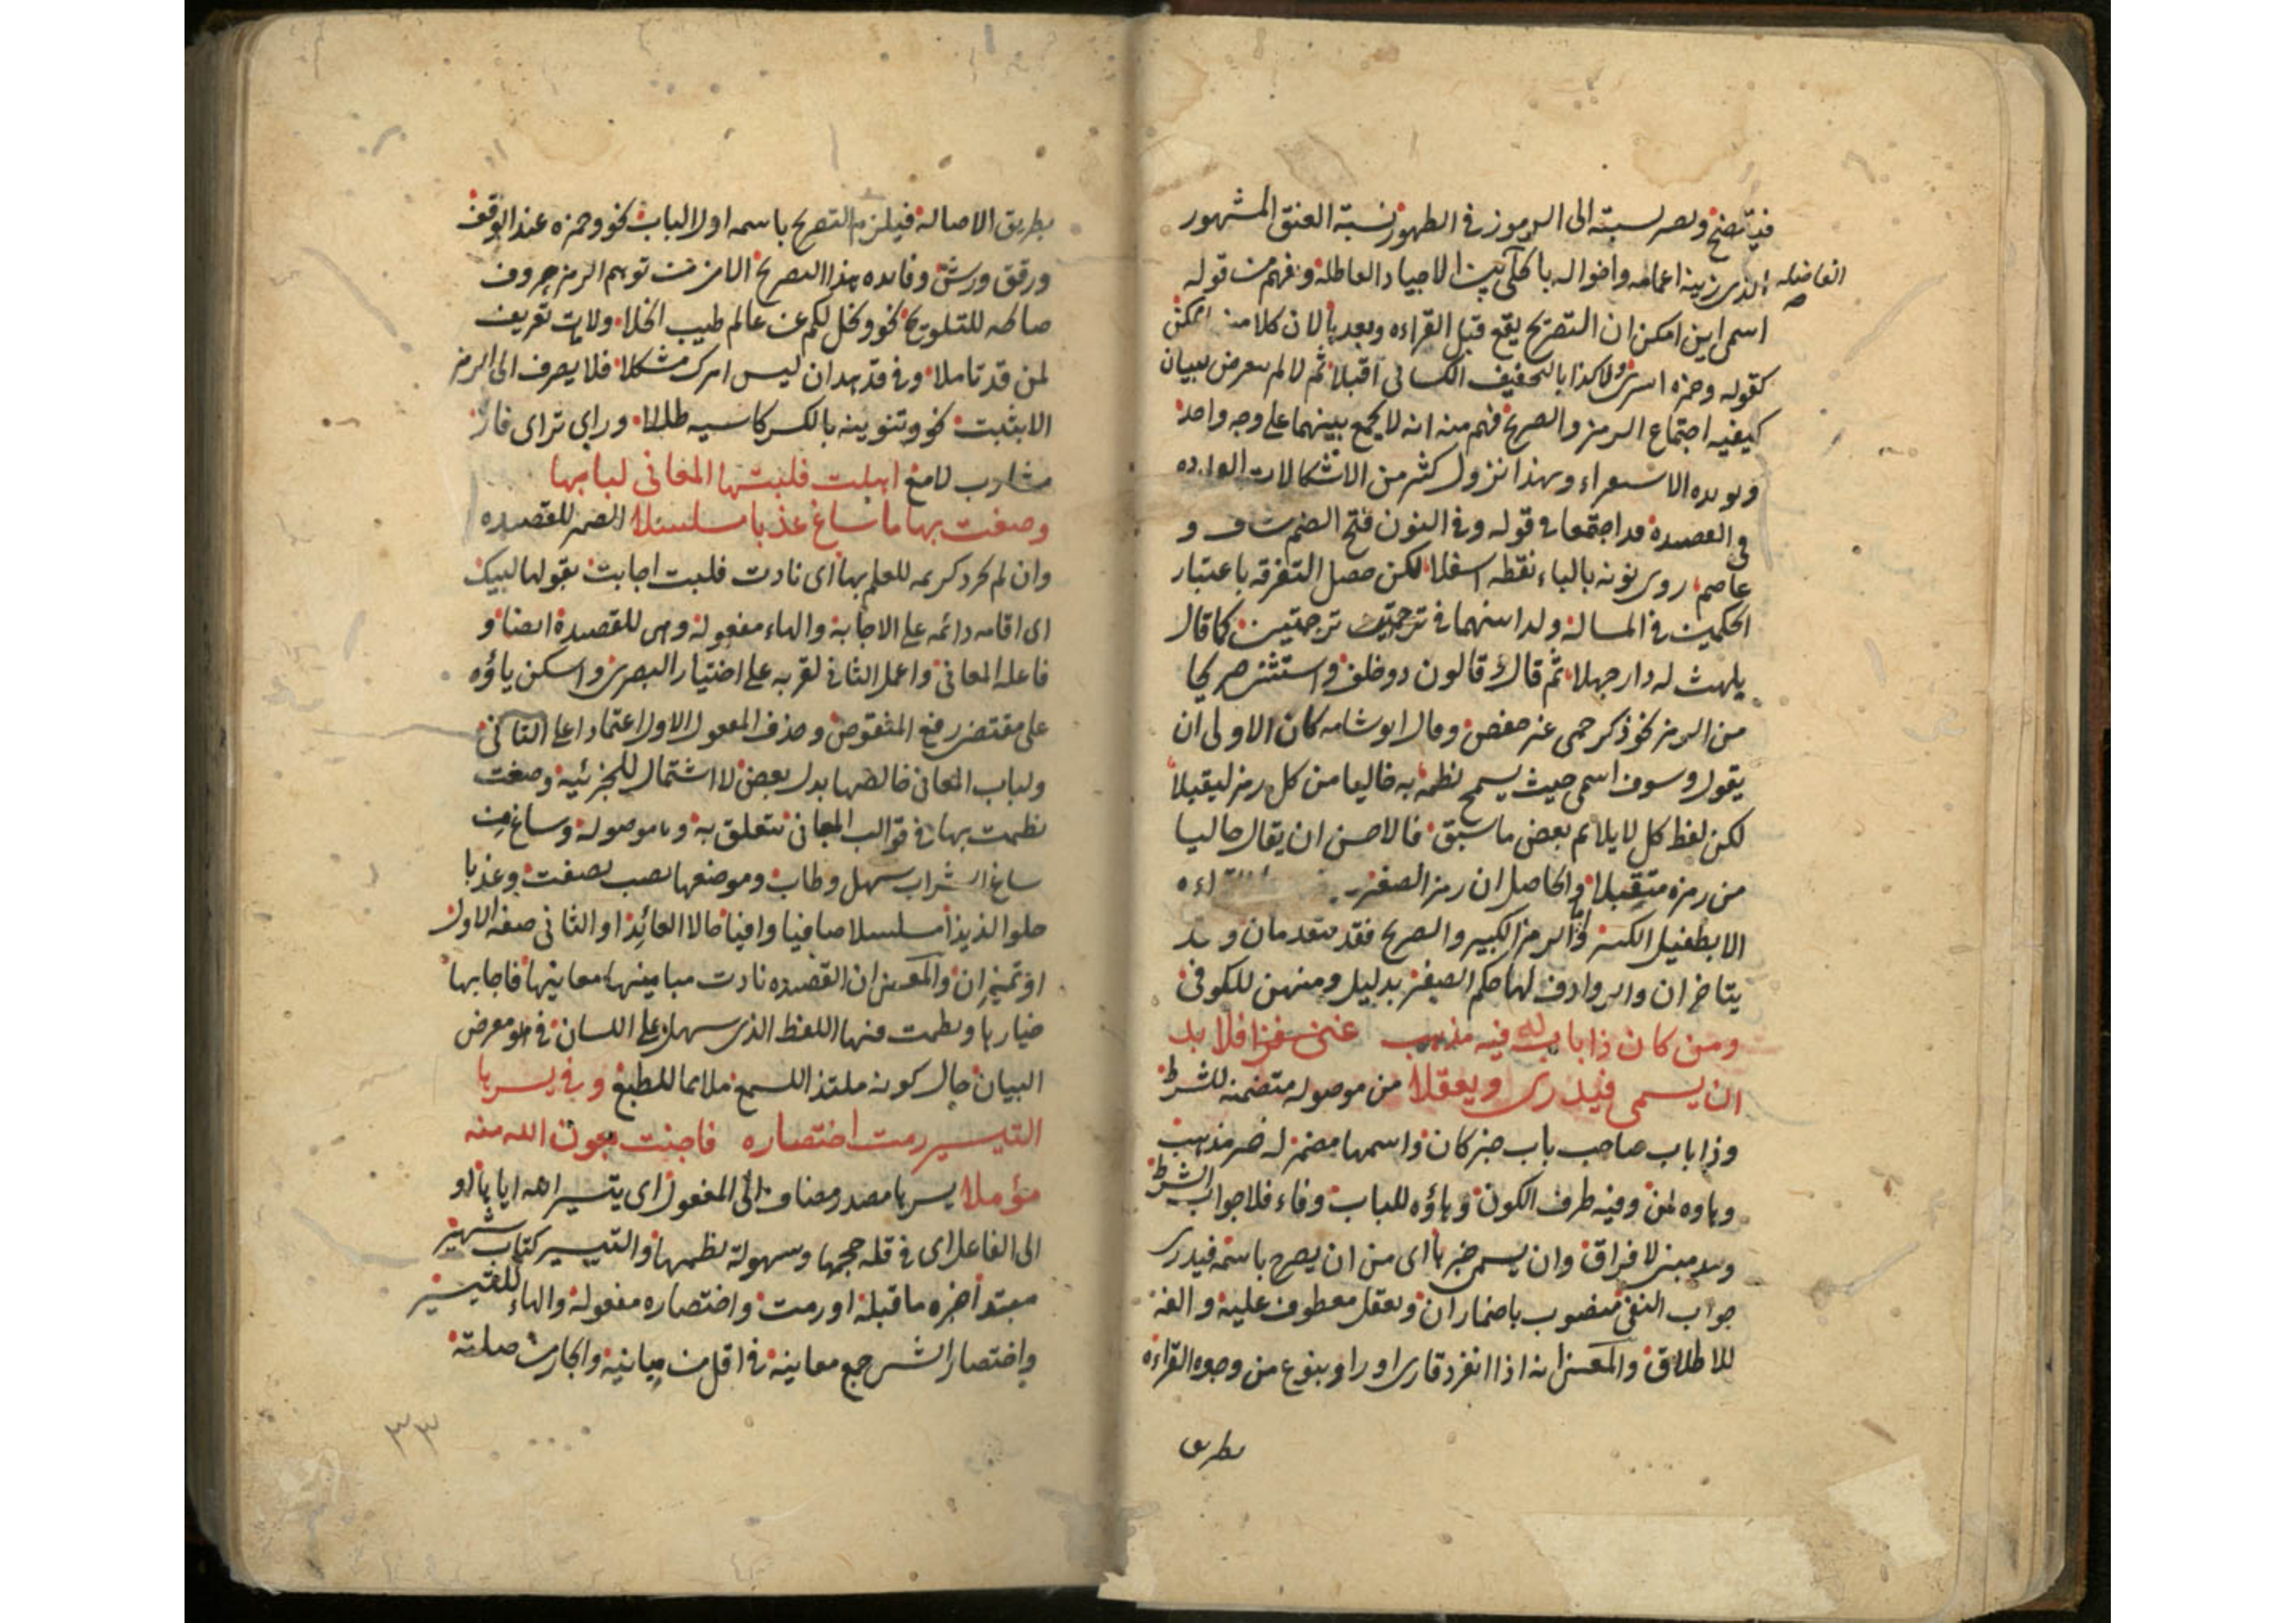 فيتضح ويصير نسبته الى الرموز في الظهور نسبة العنق المشهور
الذي زينه اعمامه واخواله بالحلي بين الاجياد العاطله وفهم من قوله
الفاضله
اسمي اين امكن ان التصريح يقع قبل القراءه وبعدها لان كلا منه ممكن
كقوله وحمزه اسرى ولا كذابا بتخفيف الكسائي اقبلا ثم لما لم يتعرض لبيان
كيفيه اجتماع الرمز والصريح فهم منه انه لا يجمع بينهما على وجه واحد
ويويده الاستقراء وبهذا تزول كثير من الاشكالات الوارده
في القصيده قد اجتمعا في قوله وفي النون فتح الضم شاف و
عاصم روى نونه بالباء نقطه اسفلا لكن حصل التفرقه باعتبار
الحكمين في المساله ولدا بينهما في ترجمتين كما قال
يلهث له دار جهلا ثم قال وقالون ذو خلف واستثنى صريحا
من الرمز نحو ذكر حمى غير حفص وقال ابو شامه كان الاولى ان
يقول وسوف اسمي حيث يسمح نظمه به خاليا من كل رمز ليقبلا
لكن لفظ كل لا يلائم بعض ما سبق فالاحسن ان يقال خاليا
من رمزه متقبلا والحاصل ان رمز الصغير
الا بطفيل الكبير واما الرمز الكبير والصريح فقد يتقدمان وقد
يتاخران والروادف لها حكم الصغير بدليل ومنهن للكوفي
ومن كان ذا باب له فيه مذهب فلا بد
ان يسمى فيدرى ويعقلا من موصوله متضمنه للشرط
وذا باب صاحب باب خبر كان واسمها مضمر له خبر مذهب
وهاؤه لمن وفيه ظرف الكون وهاؤه للباب وفاء فلا جواب الشرط
وبد مبني لا فراق وان يسمى خبرها اى من ان يصرح باسمه فيدرى
جواب النفي منصوب باضمار ان ويعقل معطوف عليه والفه
للاطلاق والمعنى انه اذا انفرد قارى او راو بنوع من وجوه القراءه
بطريق
بطريق الاصاله فيلزم التصريح باسمه اول الباب نحو وحمزه عند الوقف
ورقق ورش وفائده هذا التصريح الامن من توهم الرمز بحروف
صالحه للتلويح نحو ودخل لكم عن عالم طيب الخلا ولات تعريف
لمن قد تاملا وفي قد هدان ليس امرك مشكلا فلا يصرف الى الرمز
الا بثبت نحو وتنوينه بالكسر كاسيه ظللا وراى تراى فاز
مشارب لامع اهلت فلبتها المعاني لبابها
وصغت بها ما ساغ عذبا مسلسلا الضمير للقصيده
وان لم يجر ذكر لها للعلم بها اى نادت فلبت اجابت بقولها لبيك
اى اقامه دائمه على الاجابه والهاء مفعوله وهي للقصيدة ايضا و
فاعله المعاني واعمل الثاني لقربه على اختيار البصرى واسكن ياؤه
على مقتضى رفع المنقوص وحذف المعمول الاول اعتمادا على الثاني
ولباب المعاني خالصها بدل بعض لا اشتمال للجزئيه وصغت
نظمت بها في قوالب المعاني يتعلق به وما موصوله وساغ من
ساغ الشراب سهل وطاب وموضعها نصب بصغت وعذبا
حلوا لذيذا مسلسلا صافيا وافيا حالا العائد او الثاني صفه الاول
او تميزان والمعنى ان القصيده نادت مبانيها معانيها فاجابها
خيارها ونظمت فيها اللفظ الذى سهل على اللسان في معرض
البيان حال كونه ملتذ السمع ملائما للطبع وفي يسرها
التيسير رمت اختصاره فاجنت بعون الله منه
مؤملا يسرها مصدر مضاف الى المفعول اى يتيسير الله اياها او
الى الفاعل اى في قله حجمها وسهولة نظمها والتيسير كتاب شهير
مبتدا خبره ما قبله او رمت واختصاره مفعوله والهاء للتيسير
واختصار الشي جمع معانيه في اقل من مبانيه والجار من صلته
٣٣